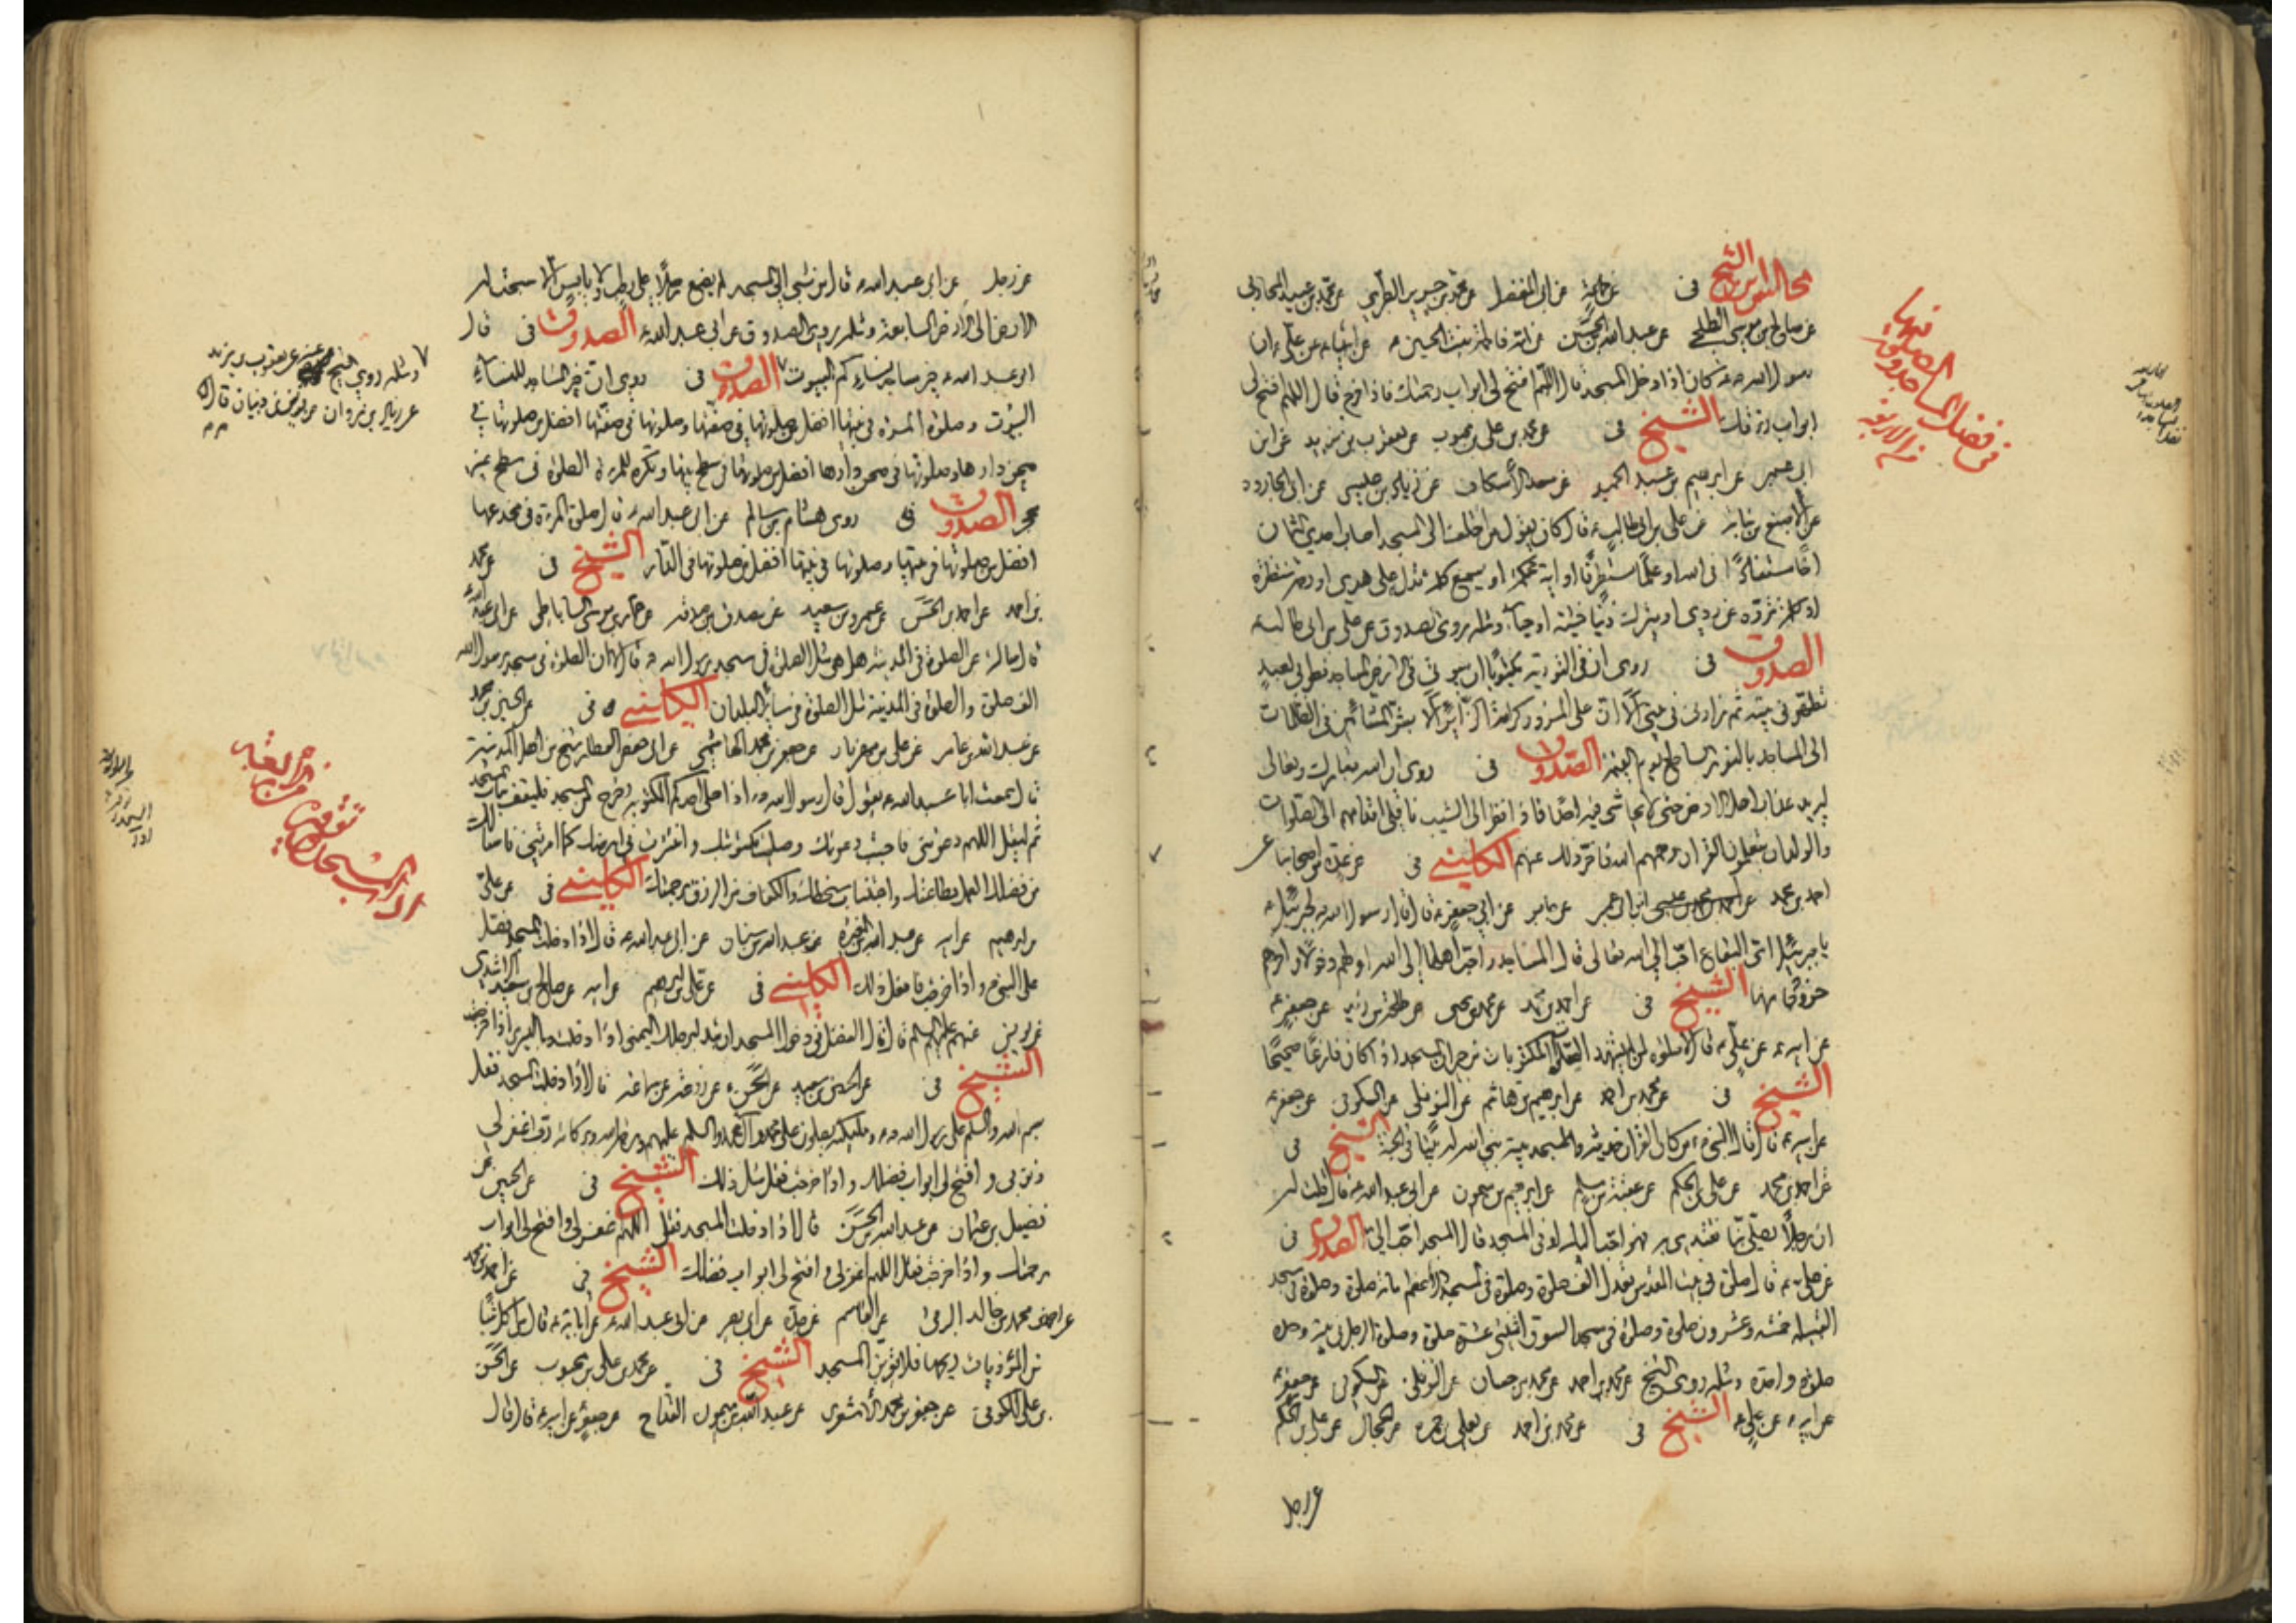 مجالس ابن الشيخ فى عن ابيه عن ابى المفضل عن محمد بن جرير الطبرى عن محمد بن عبيد المحاربى
عن صالح بن موسى الطلحى عن عبد الله بن الحسن عن امه فاطمة بنت الحسين عن ابيها عن على ان
رسول الله كان اذا دخل المسجد قال اللهم افتح لى ابواب رحمتك فاذا خرج قال اللهم افتح لى
ابواب رزقك الشيخ فى عن محمد بن على بن محبوب عن يعقوب بن يزيد عن ابن
ابى عمير عن ابرهيم بن عبد الحميد عن سعد الاسكاف عن زياد بن عيسى عن ابى الجارود
عن الاصبغ بن نباتة عن على بن ابى طالب قال كان يقول من اختلف الى المسجد اصاب احدى الثمان
اخا مستفادا فى الله او علما مستطرفا او اية محكمة او يسمع كلمة تدل على هدى او رحمة منتظرة
او كلمة ترده عن ردى او يترك ذنبا خشية او حياء ومثله روى الصدوق عن على بن ابى طالب
الصدوق فى روى ان فى التورية مكتوبا ان بيوتى فى الارض المساجد فطوبى لعبد
تطهر فى بيته ثم زارنى فى بيتى الا ان على المزور كرامة الزائر الا بشر المشائين فى الظلمات
الى المساجد بالنور الساطع يوم القيمة الصدوق فى روى ان الله تبارك وتعالى
ليريد عذاب اهل الارض حتى لا يحاشى فيهم احدا فاذا نظر الى الشيب ناقلى اقدامهم الى الصلوات
والولدان يتعلمون القران رحمهم الله فاخر ذلك عنهم الكلينى فى عن عدة من اصحابنا عن
احمد بن محمد عن ابن ابى عمير عن جابر عن ابى جعفر قال قال رسول الله لجبرئيل
يا جبرئيل اى البقاع احب الى الله تعالى قال المساجد واحب اهلها الى الله اولهم دخولا واخرهم
خروجا منها الشيخ فى عن احمد بن محمد عن محمد بن يحيى عن طلحة بن زيد عن جعفر
عن ابيه عن على قال لا صلوة لمن لم يشهد الصلوات المكتوبات من جيران المسجد اذا كان فارغا صحيحا
الشيخ فى عن محمد بن احمد عن ابرهيم بن هاشم عن النوفلى عن السكونى عن جعفر
عن ابيه قال قال النبى من كان القران حديثه والمسجد بيته بنى الله له بيتا فى الجنة الشيخ فى
عن احمد بن محمد عن على بن الحكم عن ابرهيم بن ميمون عن ابى عبد الله قال قلت له
ان رجلا يصلى بنا نقتدى به فهو احب اليك او فى المسجد قال المسجد احب الى الصدوق فى
عن على قال صلوة فى بيت المقدس تعدل الف صلوة وصلوة فى المسجد الاعظم مائة صلوة وصلوة فى مسجد
القبيلة خمسة وعشرون صلوة وصلوة فى مسجد السوق اثنتى عشرة صلوة وصلوة الرجل فى بيته وحده
صلوة واحدة ومثله روى الشيخ عن محمد بن احمد عن محمد بن حسان عن النوفلى عن السكونى عن جعفر
عن ابيه عن على الشيخ فى عن محمد بن احمد عن يعلى بن حمزة عن الحجال عن على بن الحكم
عن رجل
فى فضل المساجد والصلوة فيها
عن رجل عن ابى عبد الله قال من مشى الى المسجد لم يضع رجلا على رطب ولا يابس الا سبحت له
الارض الى الارض السابعة ومثله روى الصدوق عن ابى عبد الله الصدوق فى قال
ابو عبد الله خير مساجد نسائكم البيوت الصدوق فى روى ان خير المساجد للنساء
البيوت وصلوة المرءة فى بيتها افضل من صلوتها فى صفتها وصلوتها فى صفتها افضل من صلوتها فى
صحن دارها وصلوتها فى صحن دارها افضل من صلوتها فى سطح بيتها وتكره للمرءة الصلوة فى سطح غير
محجر الصدوق فى روى هشام بن سالم عن ابى عبد الله قال صلوة المرءة فى مخدعها
افضل من صلوتها فى بيتها وصلوتها فى بيتها افضل من صلوتها فى الدار الشيخ فى عن محمد
بن احمد عن احمد بن الحسن عن عمرو بن سعيد عن مصدق بن صدقة عن عمار بن موسى الساباطى عن ابى عبد الله
قال سالته عن الصلوة فى المدينة هل هى مثل الصلوة فى مسجد رسول الله قال لا ان الصلوة فى مسجد رسول الله
الف صلوة والصلوة فى المدينة مثل الصلوة فى سائر البلدان الكلينى فى عن الحسين بن محمد
عن عبد الله بن عامر عن على بن مهزيار عن جعفر بن محمد الهاشمى عن ابى حفص العطار شيخ من اهل المدينة
قال سمعت ابا عبد الله يقول قال رسول الله اذا صلى احدكم المكتوبة وخرج من المسجد فليقف بباب المسجد
ثم ليقل اللهم دعوتنى فاجبت دعوتك وصليت مكتوبتك وانتشرت فى ارضك كما امرتنى فاسالك
من فضلك العمل بطاعتك واجتناب سخطك والكفاف من الرزق برحمتك الكلينى فى عن على
بن ابرهيم عن ابيه عن عبد الله بن المغيرة عن عبد الله بن سنان عن ابى عبد الله قال اذا دخلت المسجد فصل
على النبى واذا خرجت فافعل ذلك الكلينى فى عن على بن ابرهيم عن ابيه عن صالح بن سعيد الراشدى
عن يونس عنهم عليهم السلم قال قال الفضل فى دخول المسجد ان تبدا برجلك اليمنى اذا دخلت وباليسرى اذا خرجت
الشيخ فى عن الحسين بن سعيد عن الحسن عن زرعة عن سماعة قال اذا دخلت المسجد فقل
بسم الله والسلم على رسول الله وملئكته يصلون على محمد وال محمد والسلم عليهم ورحمة الله وبركاته رب اغفر لى
ذنوبى وافتح لى ابواب فضلك واذا خرجت فقل مثل ذلك الشيخ فى عن الحسين عن
فضيل بن عثمان عن عبد الله بن الحسن قال اذا دخلت المسجد فقل اللهم اغفر لى وافتح لى ابواب
رحمتك واذا خرجت فقل اللهم اغفر لى وافتح لى ابواب فضلك الشيخ فى عن احمد بن محمد
عن محمد بن خالد البرقى عن القاسم عن جده عن ابى بصير عن ابى عبد الله عن ابائه قال من اكل شيئا
من المؤذيات ريحها فلا يقربن المسجد الشيخ فى عن محمد بن على بن محبوب عن الحسن
بن على الكوفى عن جعفر بن محمد الاشعرى عن عبد الله بن ميمون القداح عن جعفر عن ابيه قال قال
ومثله روى الشيخ عن يعقوب بن يزيد
عن زياد بن مروان عن يونس بن ظبيان قال